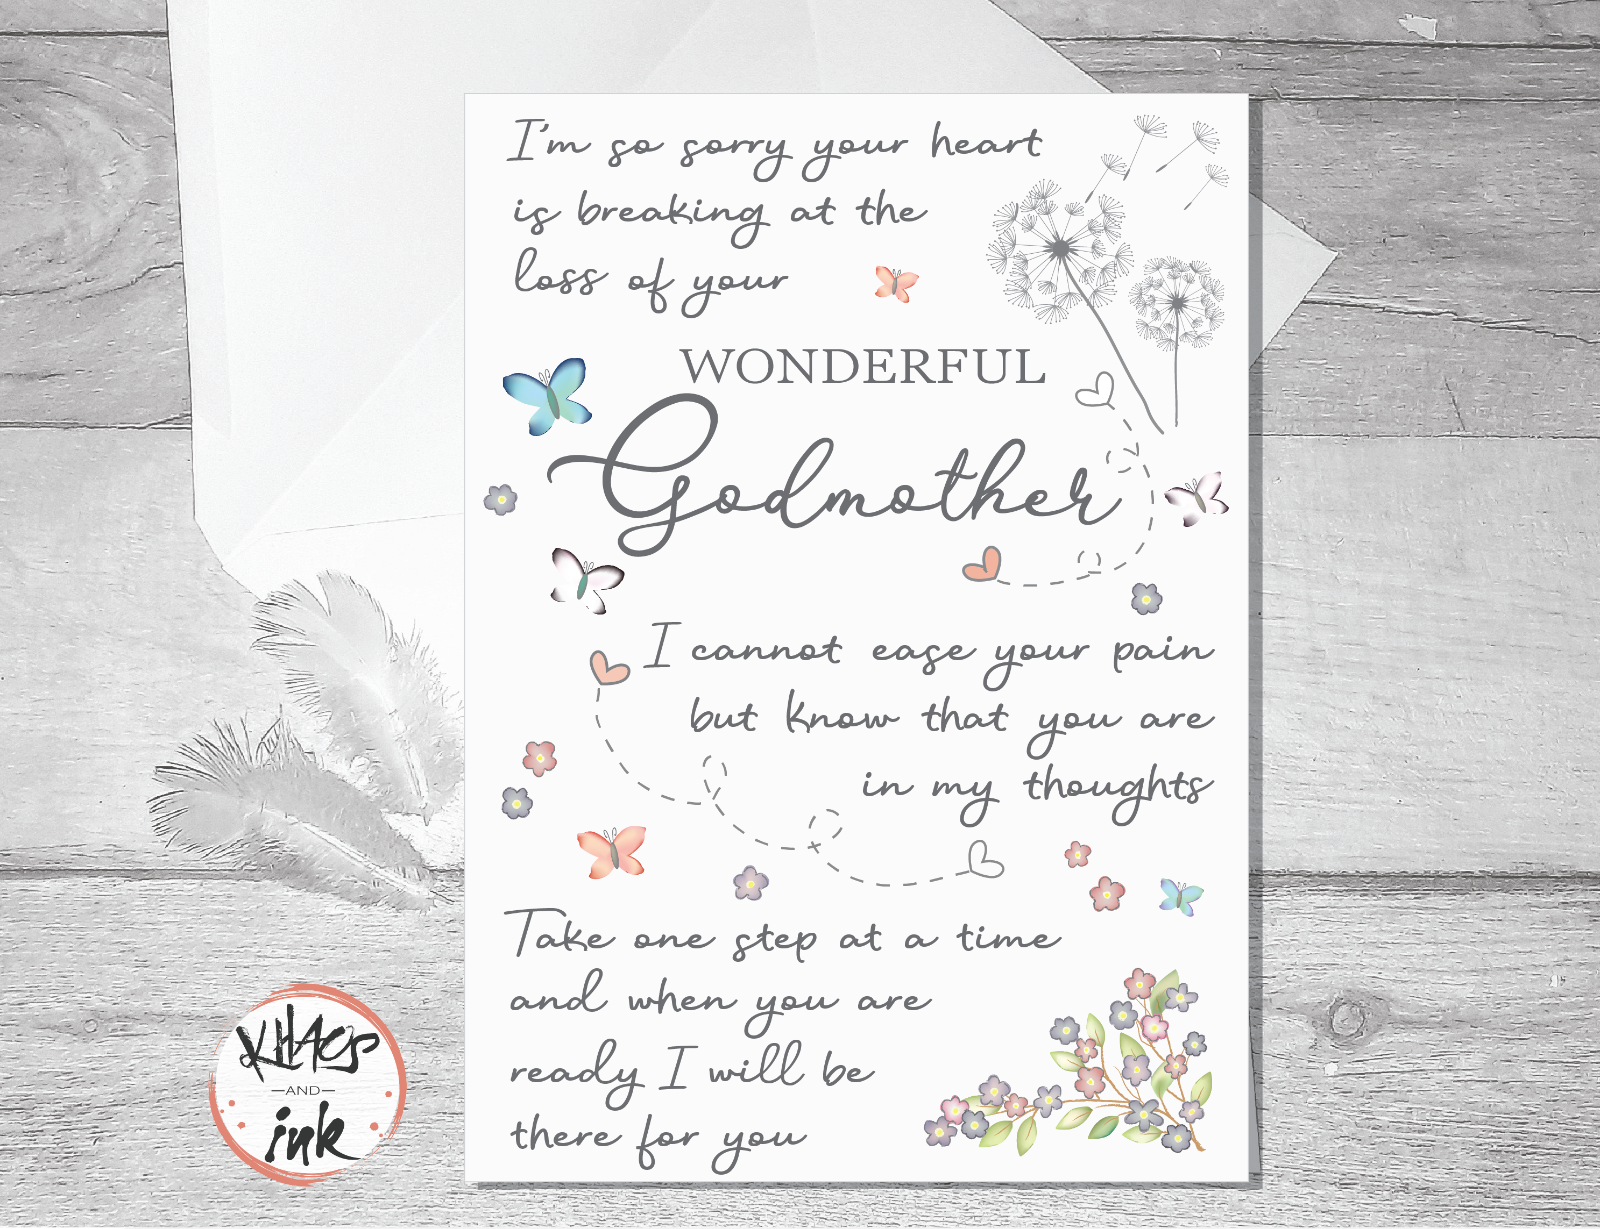 I'm so sorry your heart
is breaking at the
loss of your
WONDERFUL
Godmother
I cannot ease your pain
but know that you are
in my thoughts
Take one step at a time
and when you are
ready I will be
there for you
KHAOS
AND
ink